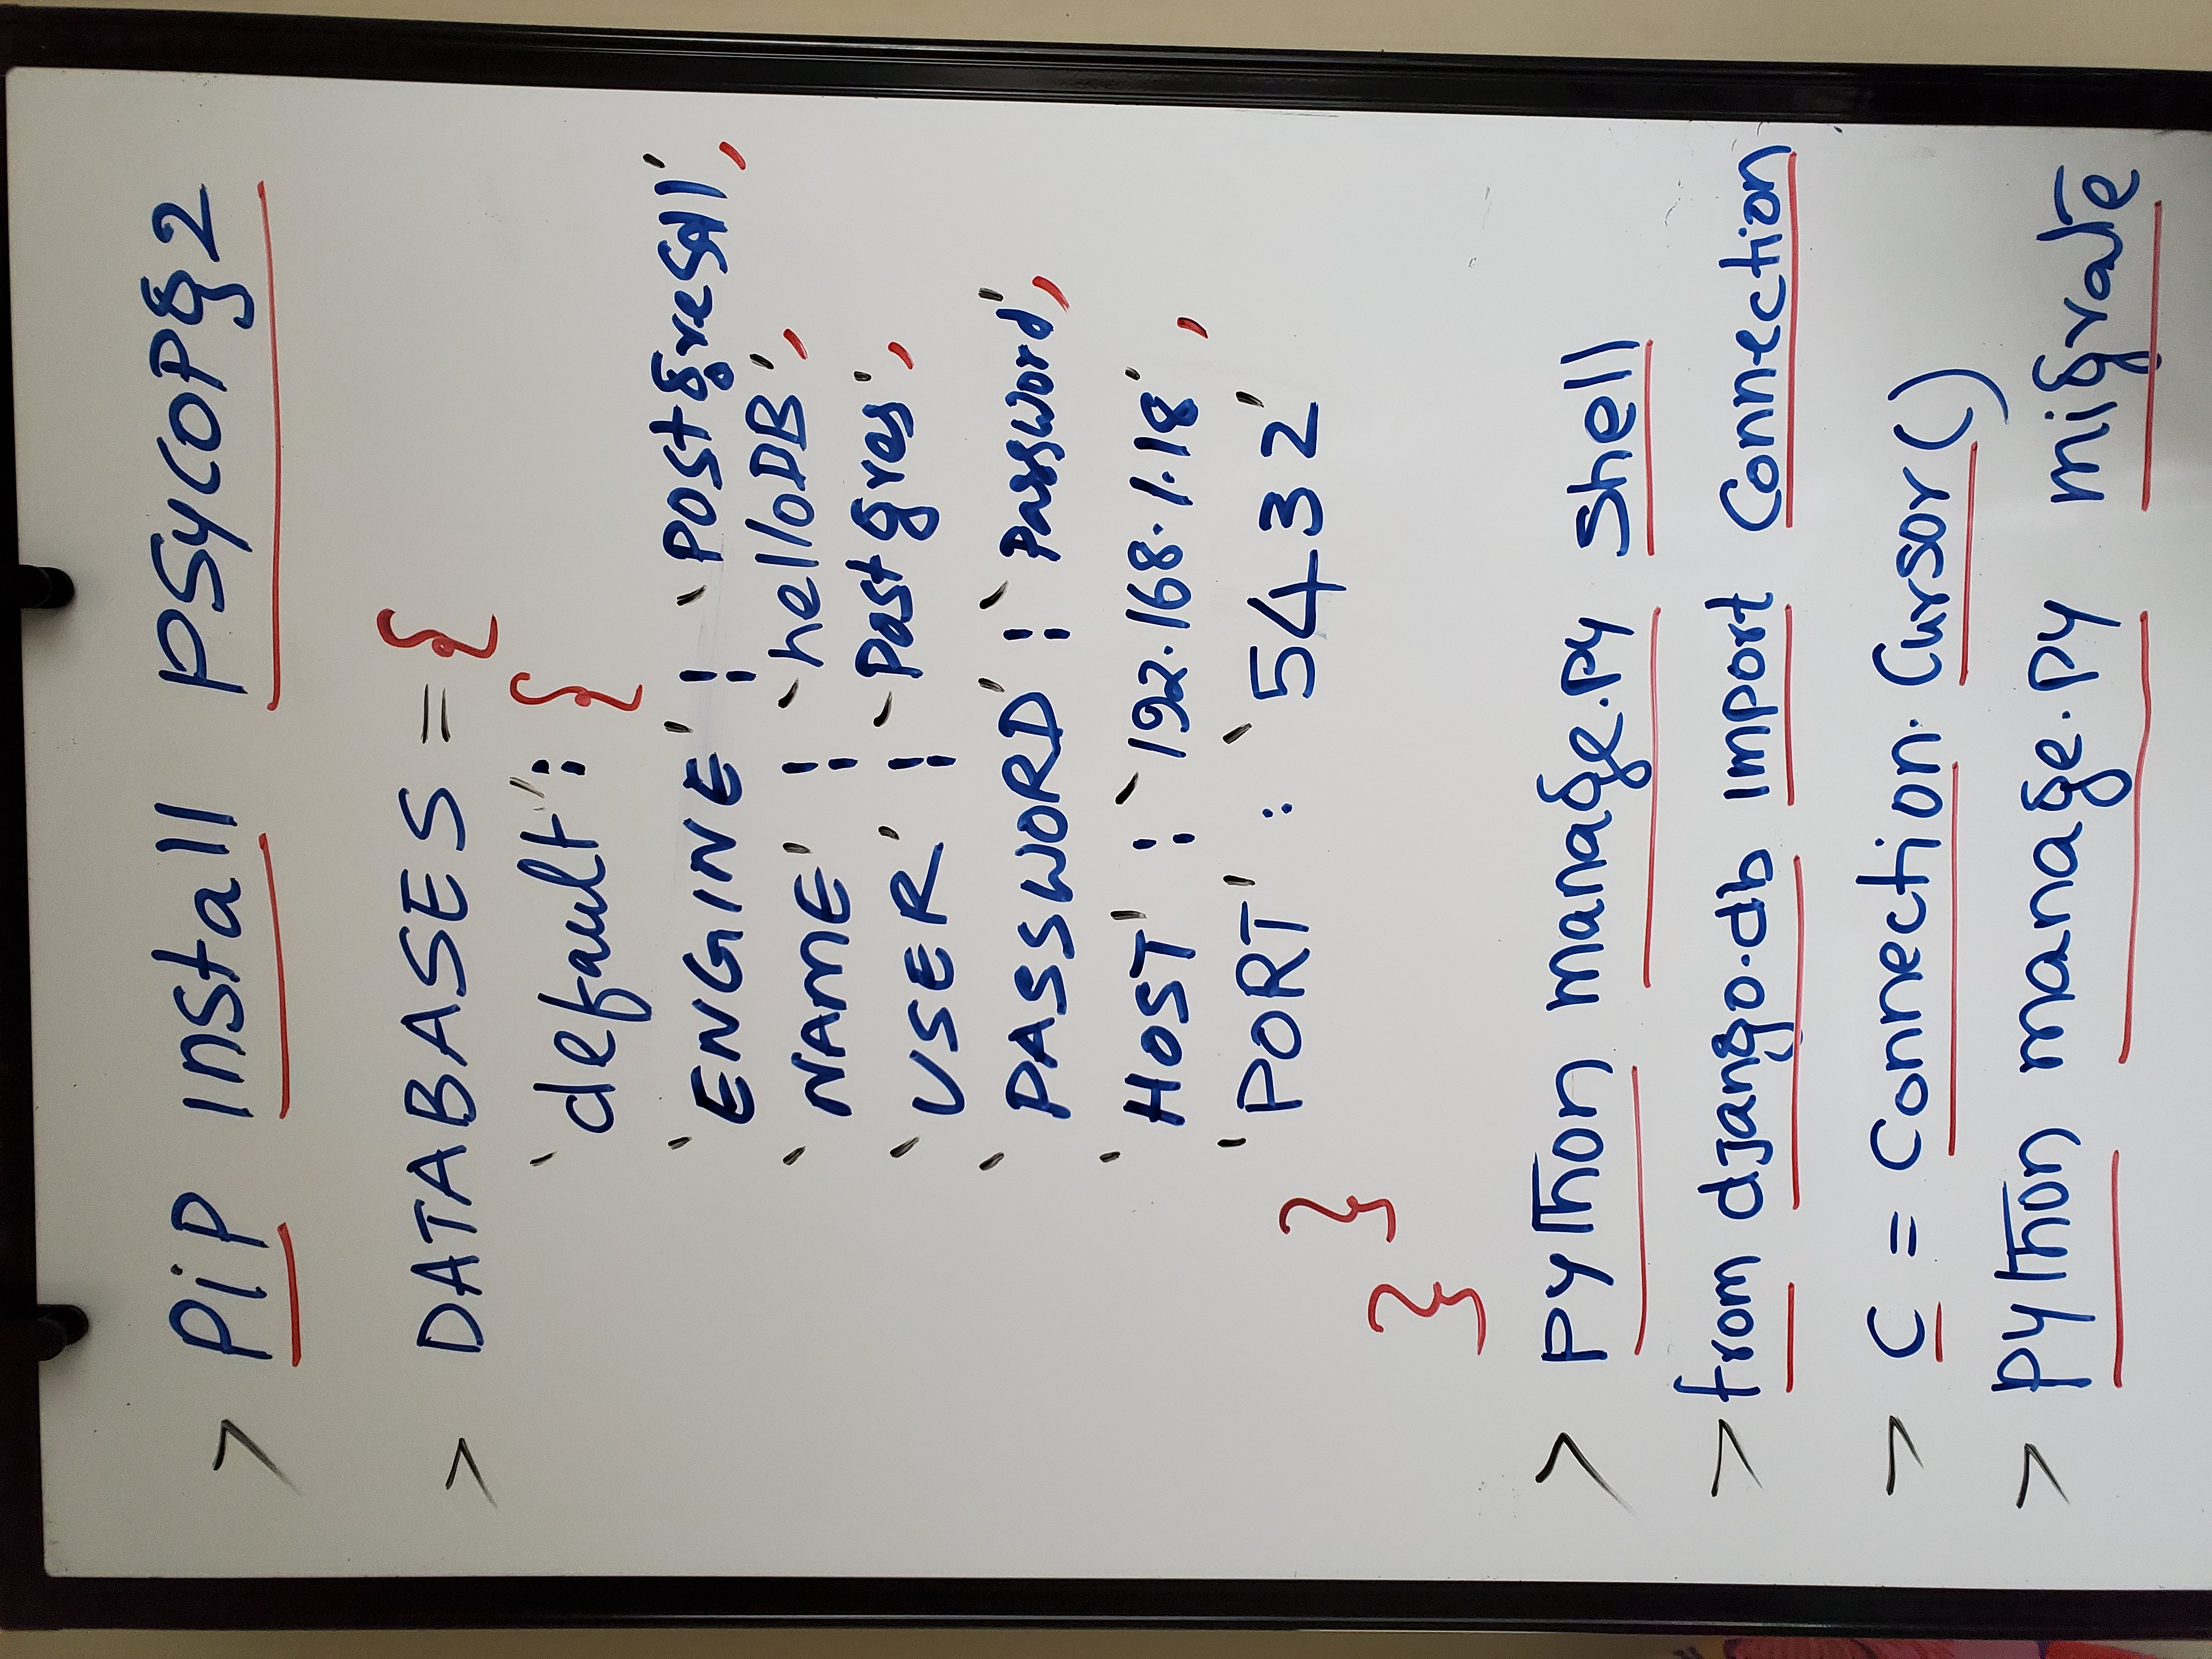 > PiP install psycopg2
> DATABASES = {
'default': {
'ENGINE' : 'Postgresql',
'NAME' : 'helloDB',
'USER' : 'Postgres',
'PASSWORD' : 'Password',
'HOST' : '192.168.1.18',
'PORT' : '5432'
}
}
> python manage.py shell
> from django.db import Connection
> C = Connection.Cursor()
> python manage.py migrate